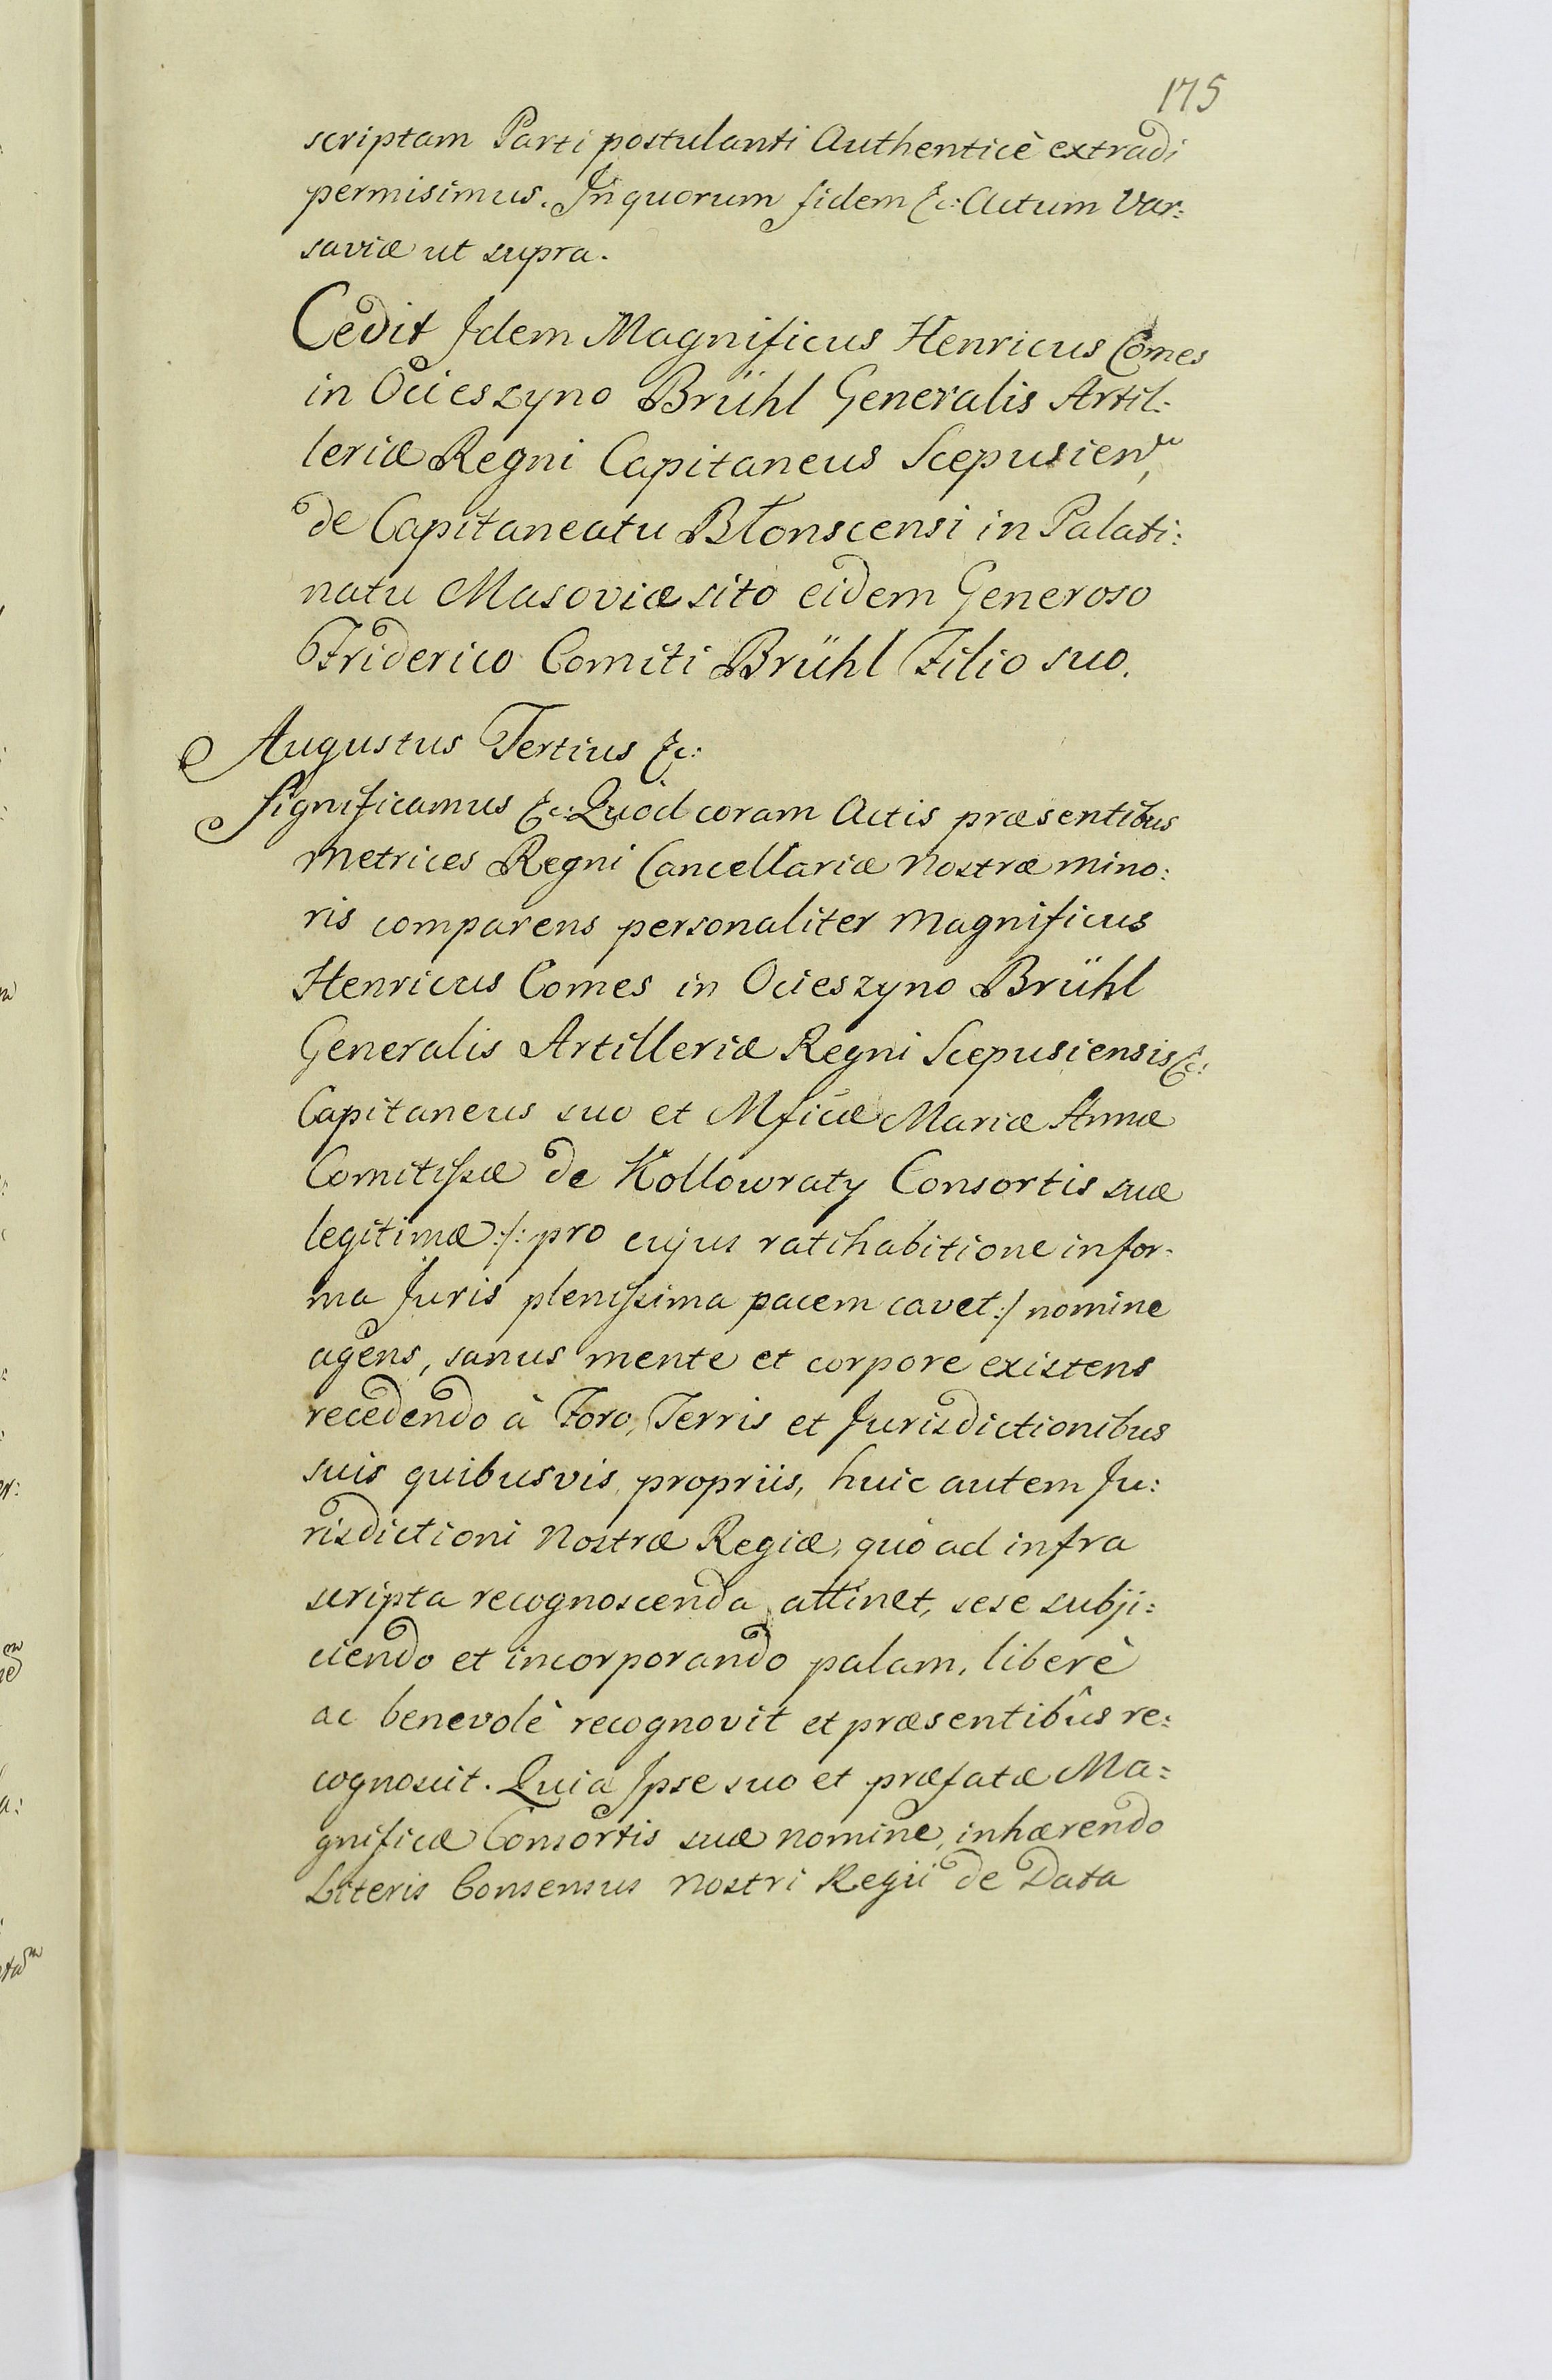 175
scriptam Parti postulanti Authenticè extradi
permisimus. In quorum fidem &c: Actum Var:
saviæ ut supra.
Cedit Idem Magnificus Henricus Comes
in Ocieszyno Brühl Generalis Artil:
leriæ Regni Capitaneus Scepusien,
de Capitaneatu Błonscensi in Palati:
natu Masoviæ sito eidem Generoso
Friderico Comiti Brühl Filio suo.
Augustus Tertius &c:
Significamus &c: Quod coram Actis præsentibus
Metrices Regni Cancellariæ Nostræ mino:
ris comparens personaliter Magnificus
Henricus Comes in Ocieszyno Brühl
Generalis Artilleriæ Regni Scepusiensis &c:
Capitaneus suo et Mficæ Mariæ Annæ
Comitissæ de Kollowraty Consortis suæ
legitimæ :/: pro cujus ratihabitione in for-
ma Juris plenissima pacem cavet :/ nomine
agens, sanus mente et corpore existens
recedendo à Foro, Terris et Jurisdictionibus
suis quibusvis propriis, huic autem Ju:
risdictioni Nostræ Regiæ, quò ad infra
scripta recognoscenda attinet, sese subji:
ciendo et incorporando palam, liberè
ac benevolè recognovit et præsentibûs re:
cognoscit. Quia Ipse suo et præfatæ Ma=
gnificæ Consortis suæ nomine, inhærendo
Literis Consensus Nostri Regii de Data